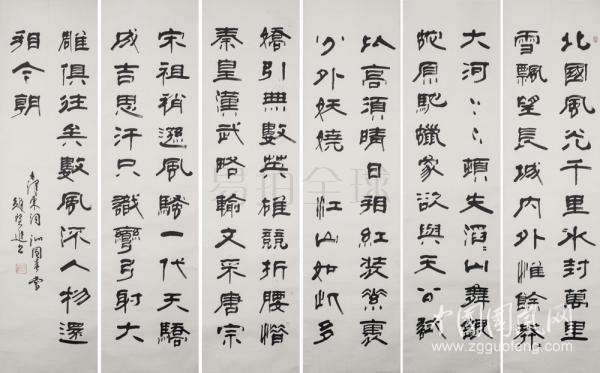 北國風光千里冰封萬里
雪飄望長城內外惟餘莽
大河上下頓失滔山舞銀
蛇原馳蠟象欲與天公試
比高須晴日看紅裝素裹
分外妖嬈江山如此多
嬌引無數英雄競折腰惜
秦皇漢武略輸文采唐宗
宋祖稍遜風騷一代天驕
成吉思汗只識彎弓射大
雕俱往矣數風流人物還
看今朝
毛澤東詞沁園春雪
易拍全球
中国国风网
www.zgguofeng.com